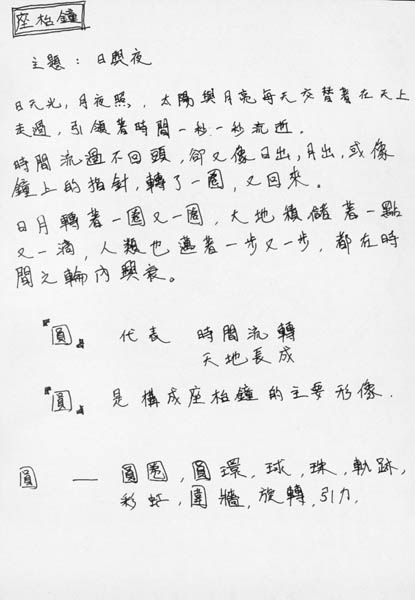 座枱鐘
主題：日與夜
日天光，月夜照，太陽與月亮每天交替著在天上
走過，引領著時間一秒一秒流逝。
時間流過不回頭，卻又像日出，月出，或像
鐘上的指針，轉了一圈，又回來。
日月轉著一圈又一圈，大地積儲著一點
又一滴，人類也邁著一步又一步，都在時
間之輪內興衰。
『圓』代表 時間流轉
天地長成
『圓』是構成座枱鐘的主要形像．
圓 — 圓圈，圓環，球，珠，軌跡，
彩虹，圍牆，旋轉，引力，